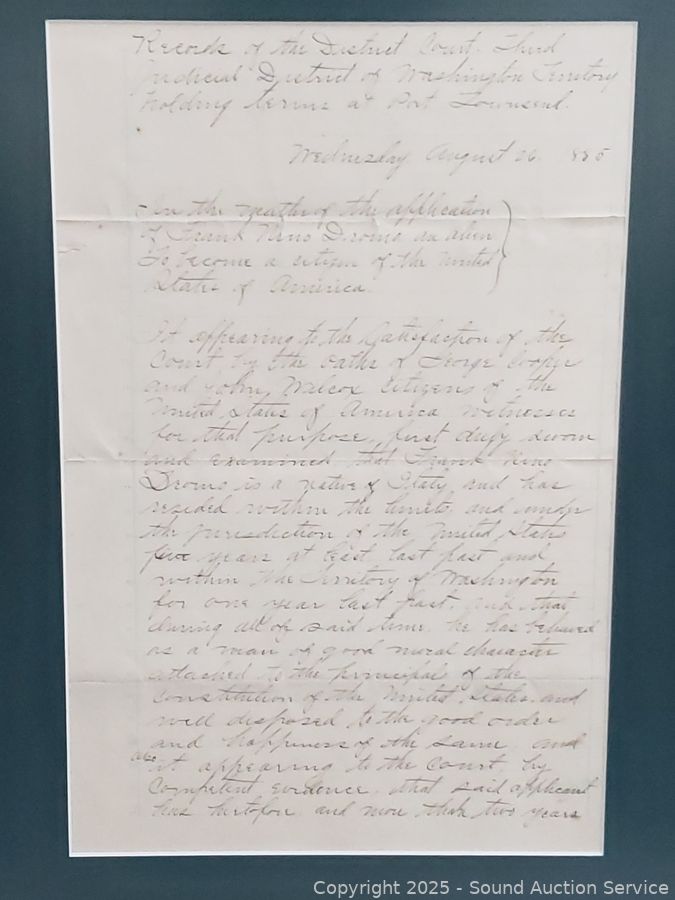 Records of the District Court. Third
Judicial District of Washington Territory
holding terms at Port Townsend.
Wednesday August 26 1885
In the matter of the application
of Frank Nino Dromo an alien
To become a citizen of the United
States of America.
It appearing to the Satisfaction of the
Court by the oaths of George Cooper
and John Wilcox citizens of the
United States of America witnesses
for that purpose, first duly sworn
and examined that Frank Nino
Dromo is a native of Italy and has
resided within the limits and under
the jurisdiction of the United States
five years at least last past and
within the Territory of Washington
for one year last past. and that
during all of said time. he has behaved
as a man of good moral character
attached to the principals of the
Constitution of the United States. and
well disposed to the good order
and happiness of the same and
also it appearing to the Court, by
Competent evidence. that said applicant
has hertofore and more than two years
Copyright 2025 - Sound Auction Service